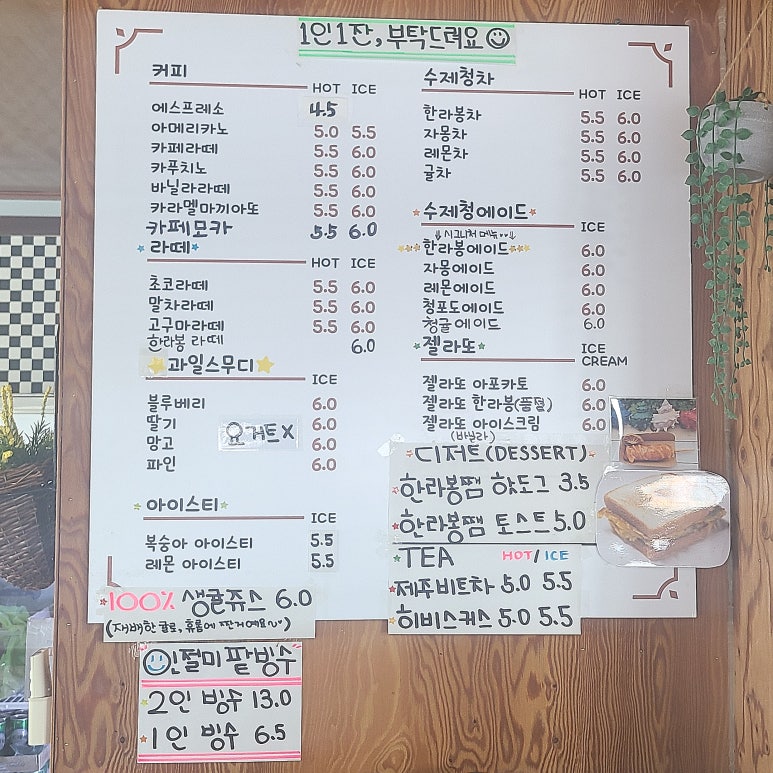 1인1잔, 부탁드려요
커피
HOT ICE
에스프레소 4.5
아메리카노 5.0 5.5
카페라떼 5.5 6.0
카푸치노 5.5 6.0
바닐라라떼 5.5 6.0
카라멜마끼아또 5.5 6.0
카페모카 5.5 6.0
라떼
HOT ICE
초코라떼 5.5 6.0
말차라떼 5.5 6.0
고구마라떼 5.5 6.0
한라봉 라떼 6.0
과일스무디
ICE
블루베리 6.0
딸기 6.0
망고 6.0
파인 6.0
요거트X
아이스티
ICE
복숭아 아이스티 5.5
레몬 아이스티 5.5
100% 생귤쥬스 6.0
(재배한 귤로, 휴롬에 짠거예요~)
인절미 팥빙수
2인 빙수 13.0
1인 빙수 6.5
수제청차
HOT ICE
한라봉차 5.5 6.0
자몽차 5.5 6.0
레몬차 5.5 6.0
귤차 5.5 6.0
수제청에이드
ICE
↓시그니처 메뉴♥♥↓
한라봉에이드 6.0
자몽에이드 6.0
레몬에이드 6.0
청포도에이드 6.0
청귤에이드 6.0
젤라또
ICE CREAM
젤라또 아포카토 6.0
젤라또 한라봉(품절) 6.0
젤라또 아이스크림 6.0
(바닐라)
디저트(DESSERT)
한라봉쨈 핫도그 3.5
한라봉쨈 토스트 5.0
TEA HOT/ICE
제주비트차 5.0 5.5
히비스커스 5.0 5.5